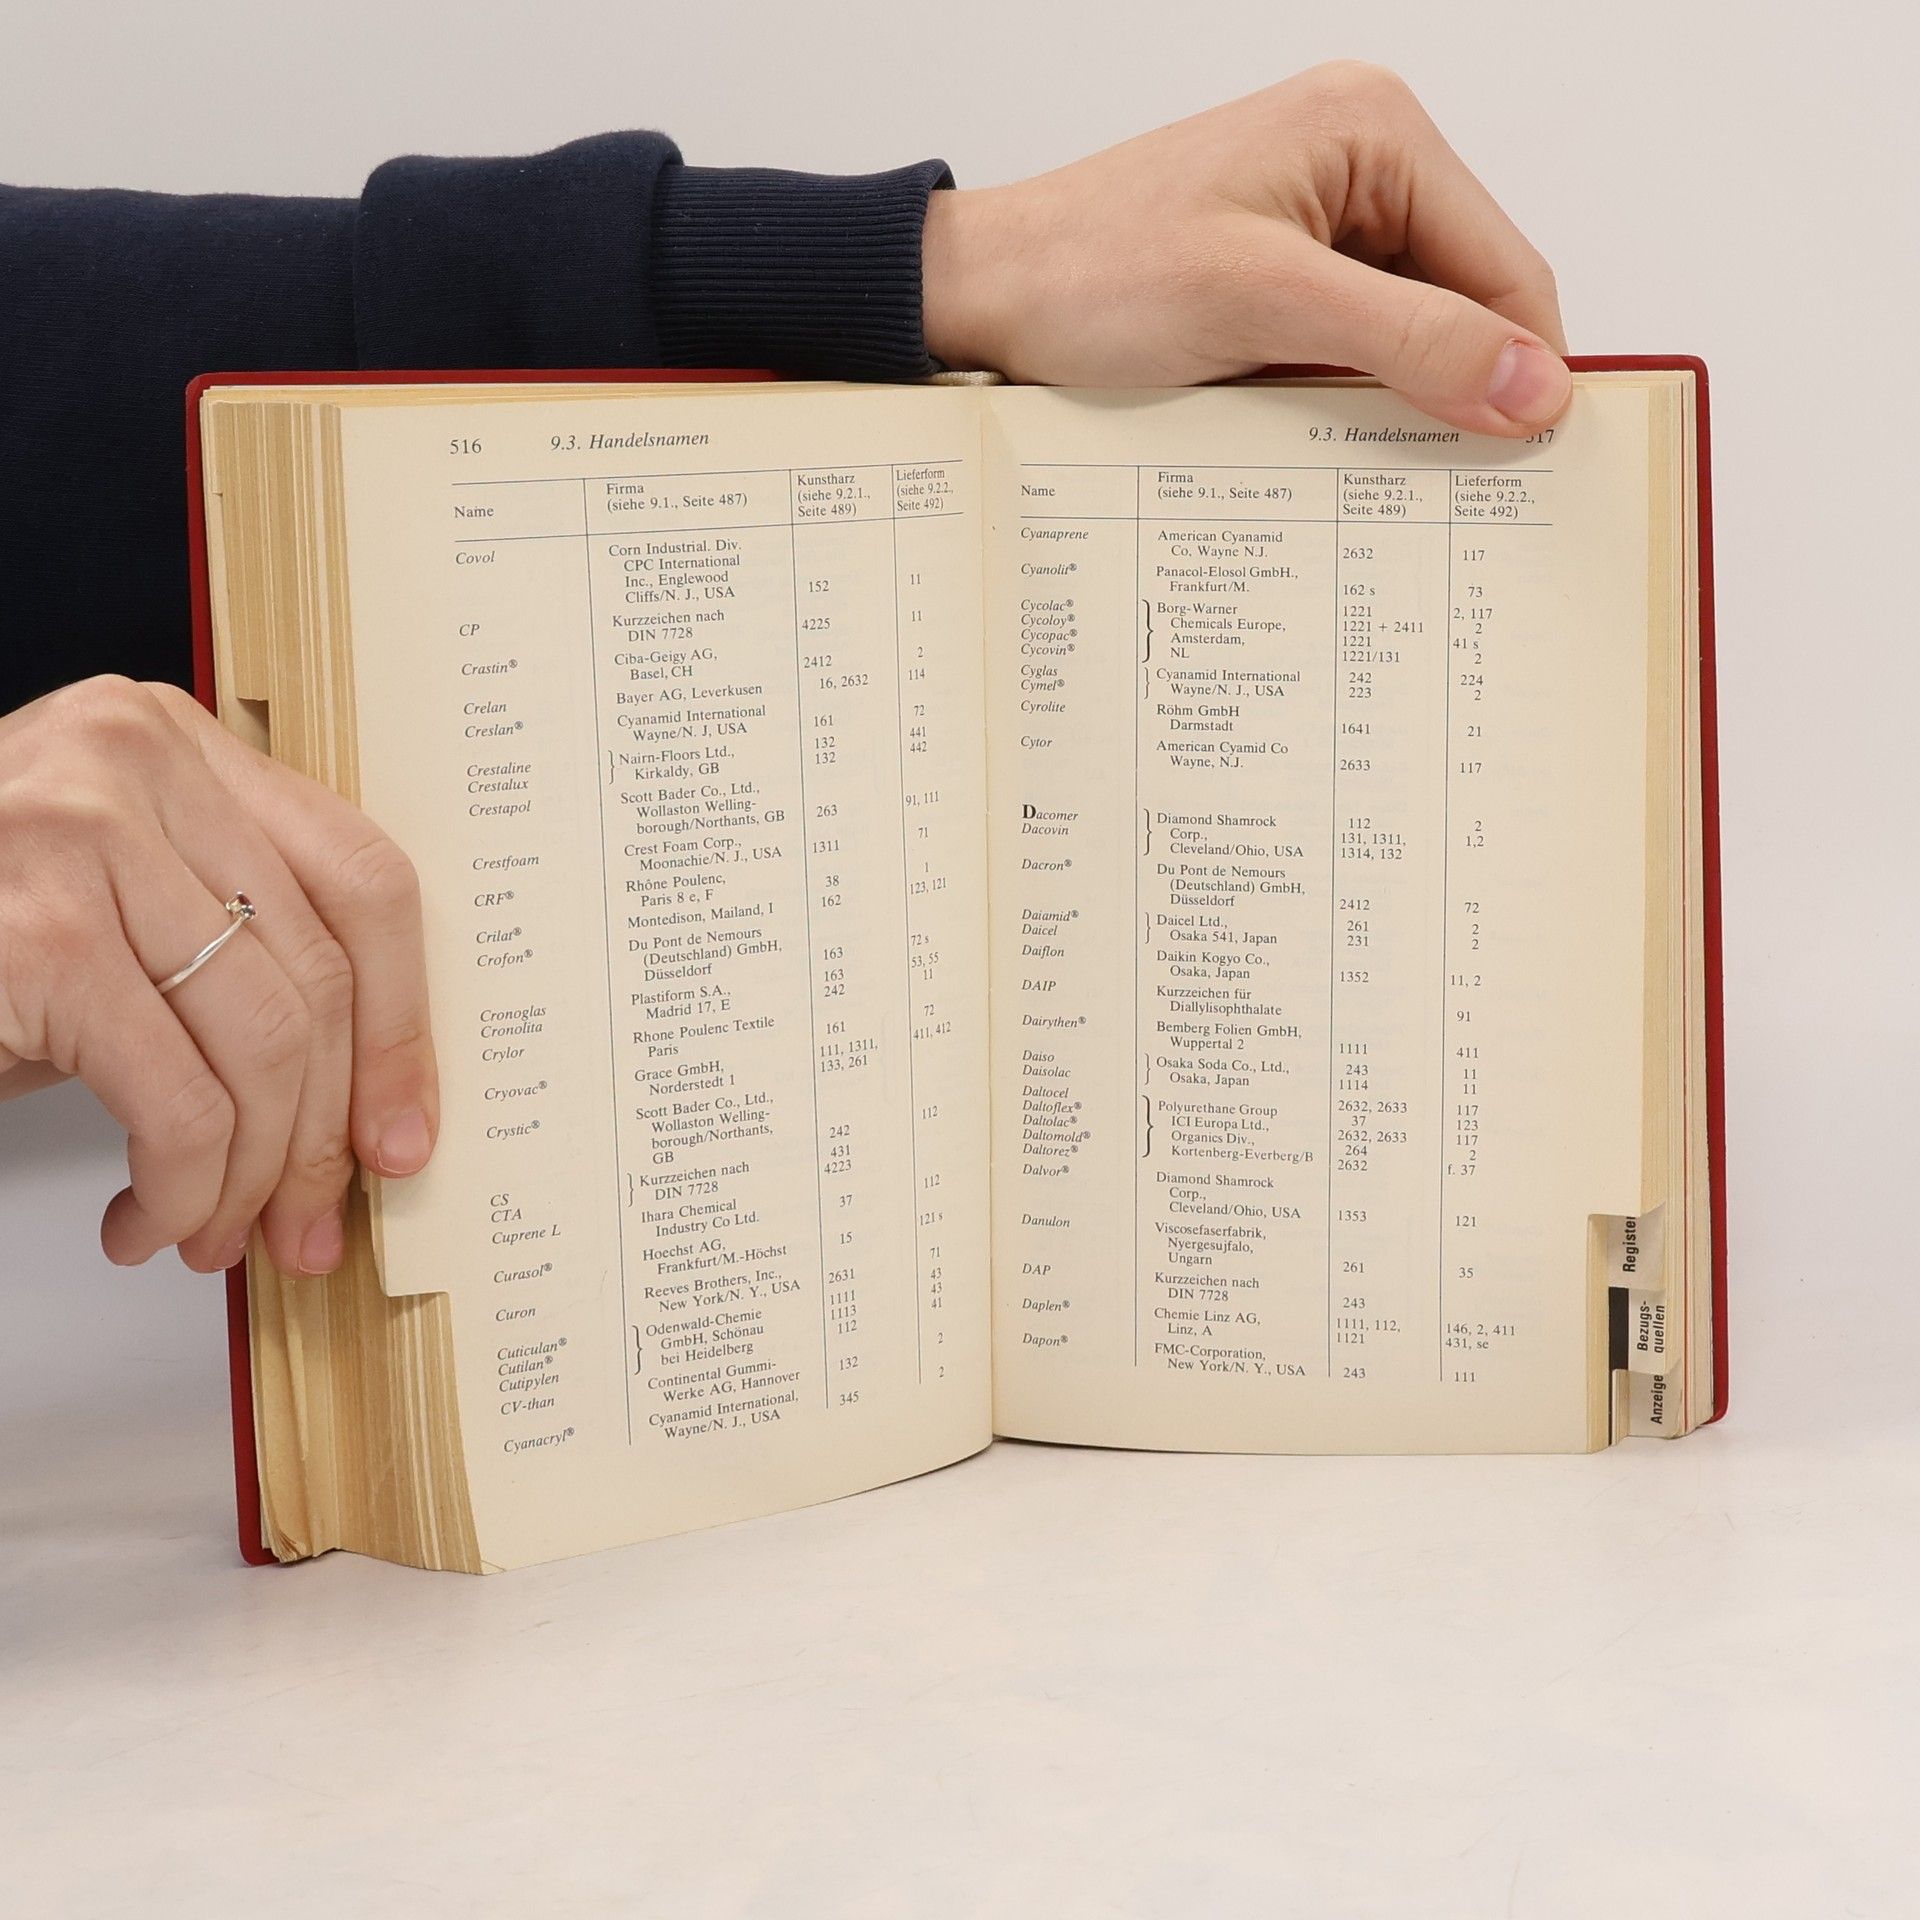 516 9.3. Handelsnamen
Name Firma (siehe 9.1., Seite 487) Kunstharz (siehe 9.2.1., Seite 489) Lieferform (siehe 9.2.2., Seite 492)
Covol Corn Industrial. Div.
CPC International
Inc., Englewood
Cliffs/N. J., USA 152 11
CP Kurzzeichen nach
DIN 7728 4225 11
Crastin® Ciba-Geigy AG,
Basel, CH 2412 2
Crelan Bayer AG, Leverkusen 16, 2632 114
Creslan® Cyanamid International
Wayne/N. J, USA 161 72
Crestaline } Nairn-Floors Ltd., 132 441
Crestalux Kirkaldy, GB 132 442
Crestapol Scott Bader Co., Ltd.,
Wollaston Welling-
borough/Northants, GB 263 91, 111
Crestfoam Crest Foam Corp.,
Moonachie/N. J., USA 1311 71
CRF® Rhône Poulenc,
Paris 8 e, F 38 1
Crilat® Montedison, Mailand, I 162 123, 121
Crofon® Du Pont de Nemours
(Deutschland) GmbH,
Düsseldorf 163 72 s
Cronoglas Plastiform S.A., 163 53, 55
Cronolita Madrid 17, E 242 11
Crylor Rhone Poulenc Textile
Paris 161 72
Cryovac® Grace GmbH, 111, 1311, 411, 412
Norderstedt 1 133, 261
Crystic® Scott Bader Co., Ltd.,
Wollaston Welling-
borough/Northants,
GB 242 112
CS } Kurzzeichen nach 431
CTA DIN 7728 4223
Cuprene L Ihara Chemical
Industry Co Ltd. 37 112
Curasol® Hoechst AG,
Frankfurt/M.-Höchst 15 121 s
Curon Reeves Brothers, Inc.,
New York/N. Y., USA 2631 71
Cuticulan® } Odenwald-Chemie 1111 43
Cutilan® GmbH, Schönau 1113 43
Cutipylen bei Heidelberg 112 41
CV-than Continental Gummi-
Werke AG, Hannover 132 2
Cyanacryl® Cyanamid International,
Wayne/N. J., USA 345 2
9.3. Handelsnamen 517
Name Firma (siehe 9.1., Seite 487) Kunstharz (siehe 9.2.1., Seite 489) Lieferform (siehe 9.2.2., Seite 492)
Cyanaprene American Cyanamid
Co, Wayne N.J. 2632 117
Cyanolit® Panacol-Elosol GmbH.,
Frankfurt/M. 162 s 73
Cycolac® } Borg-Warner 1221 2, 117
Cycoloy® Chemicals Europe, 1221 + 2411 2
Cycopac® Amsterdam, 1221 41 s
Cycovin® NL 1221/131 2
Cyglas } Cyanamid International 242 224
Cymel® Wayne/N. J., USA 223 2
Cyrolite Röhm GmbH
Darmstadt 1641 21
Cytor American Cyamid Co
Wayne, N.J. 2633 117
Dacomer } Diamond Shamrock 112 2
Dacovin Corp., 131, 1311, 1,2
Cleveland/Ohio, USA 1314, 132
Dacron® Du Pont de Nemours
(Deutschland) GmbH,
Düsseldorf 2412 72
Daiamid® } Daicel Ltd., 261 2
Daicel Osaka 541, Japan 231 2
Daiflon Daikin Kogyo Co.,
Osaka, Japan 1352 11, 2
DAIP Kurzzeichen für
Diallylisophthalate 91
Dairythen® Bemberg Folien GmbH,
Wuppertal 2 1111 411
Daiso } Osaka Soda Co., Ltd., 243 11
Daisolac Osaka, Japan 1114 11
Daltocel } Polyurethane Group 2632, 2633 117
Daltoflex® ICI Europa Ltd., 37 123
Daltolac® Organics Div., 2632, 2633 117
Daltomold® Kortenberg-Everberg/B 264 2
Daltorez® 2632 f. 37
Dalvor® Diamond Shamrock
Corp.,
Cleveland/Ohio, USA 1353 121
Danulon Viscosefaserfabrik,
Nyergesujfalo,
Ungarn 261 35
DAP Kurzzeichen nach
DIN 7728 243
Daplen® Chemie Linz AG, 1111, 112, 146, 2, 411
Linz, A 1121 431, se
Dapon® FMC-Corporation,
New York/N. Y., USA 243 111
Register
Bezugs-
quellen
Anzeige